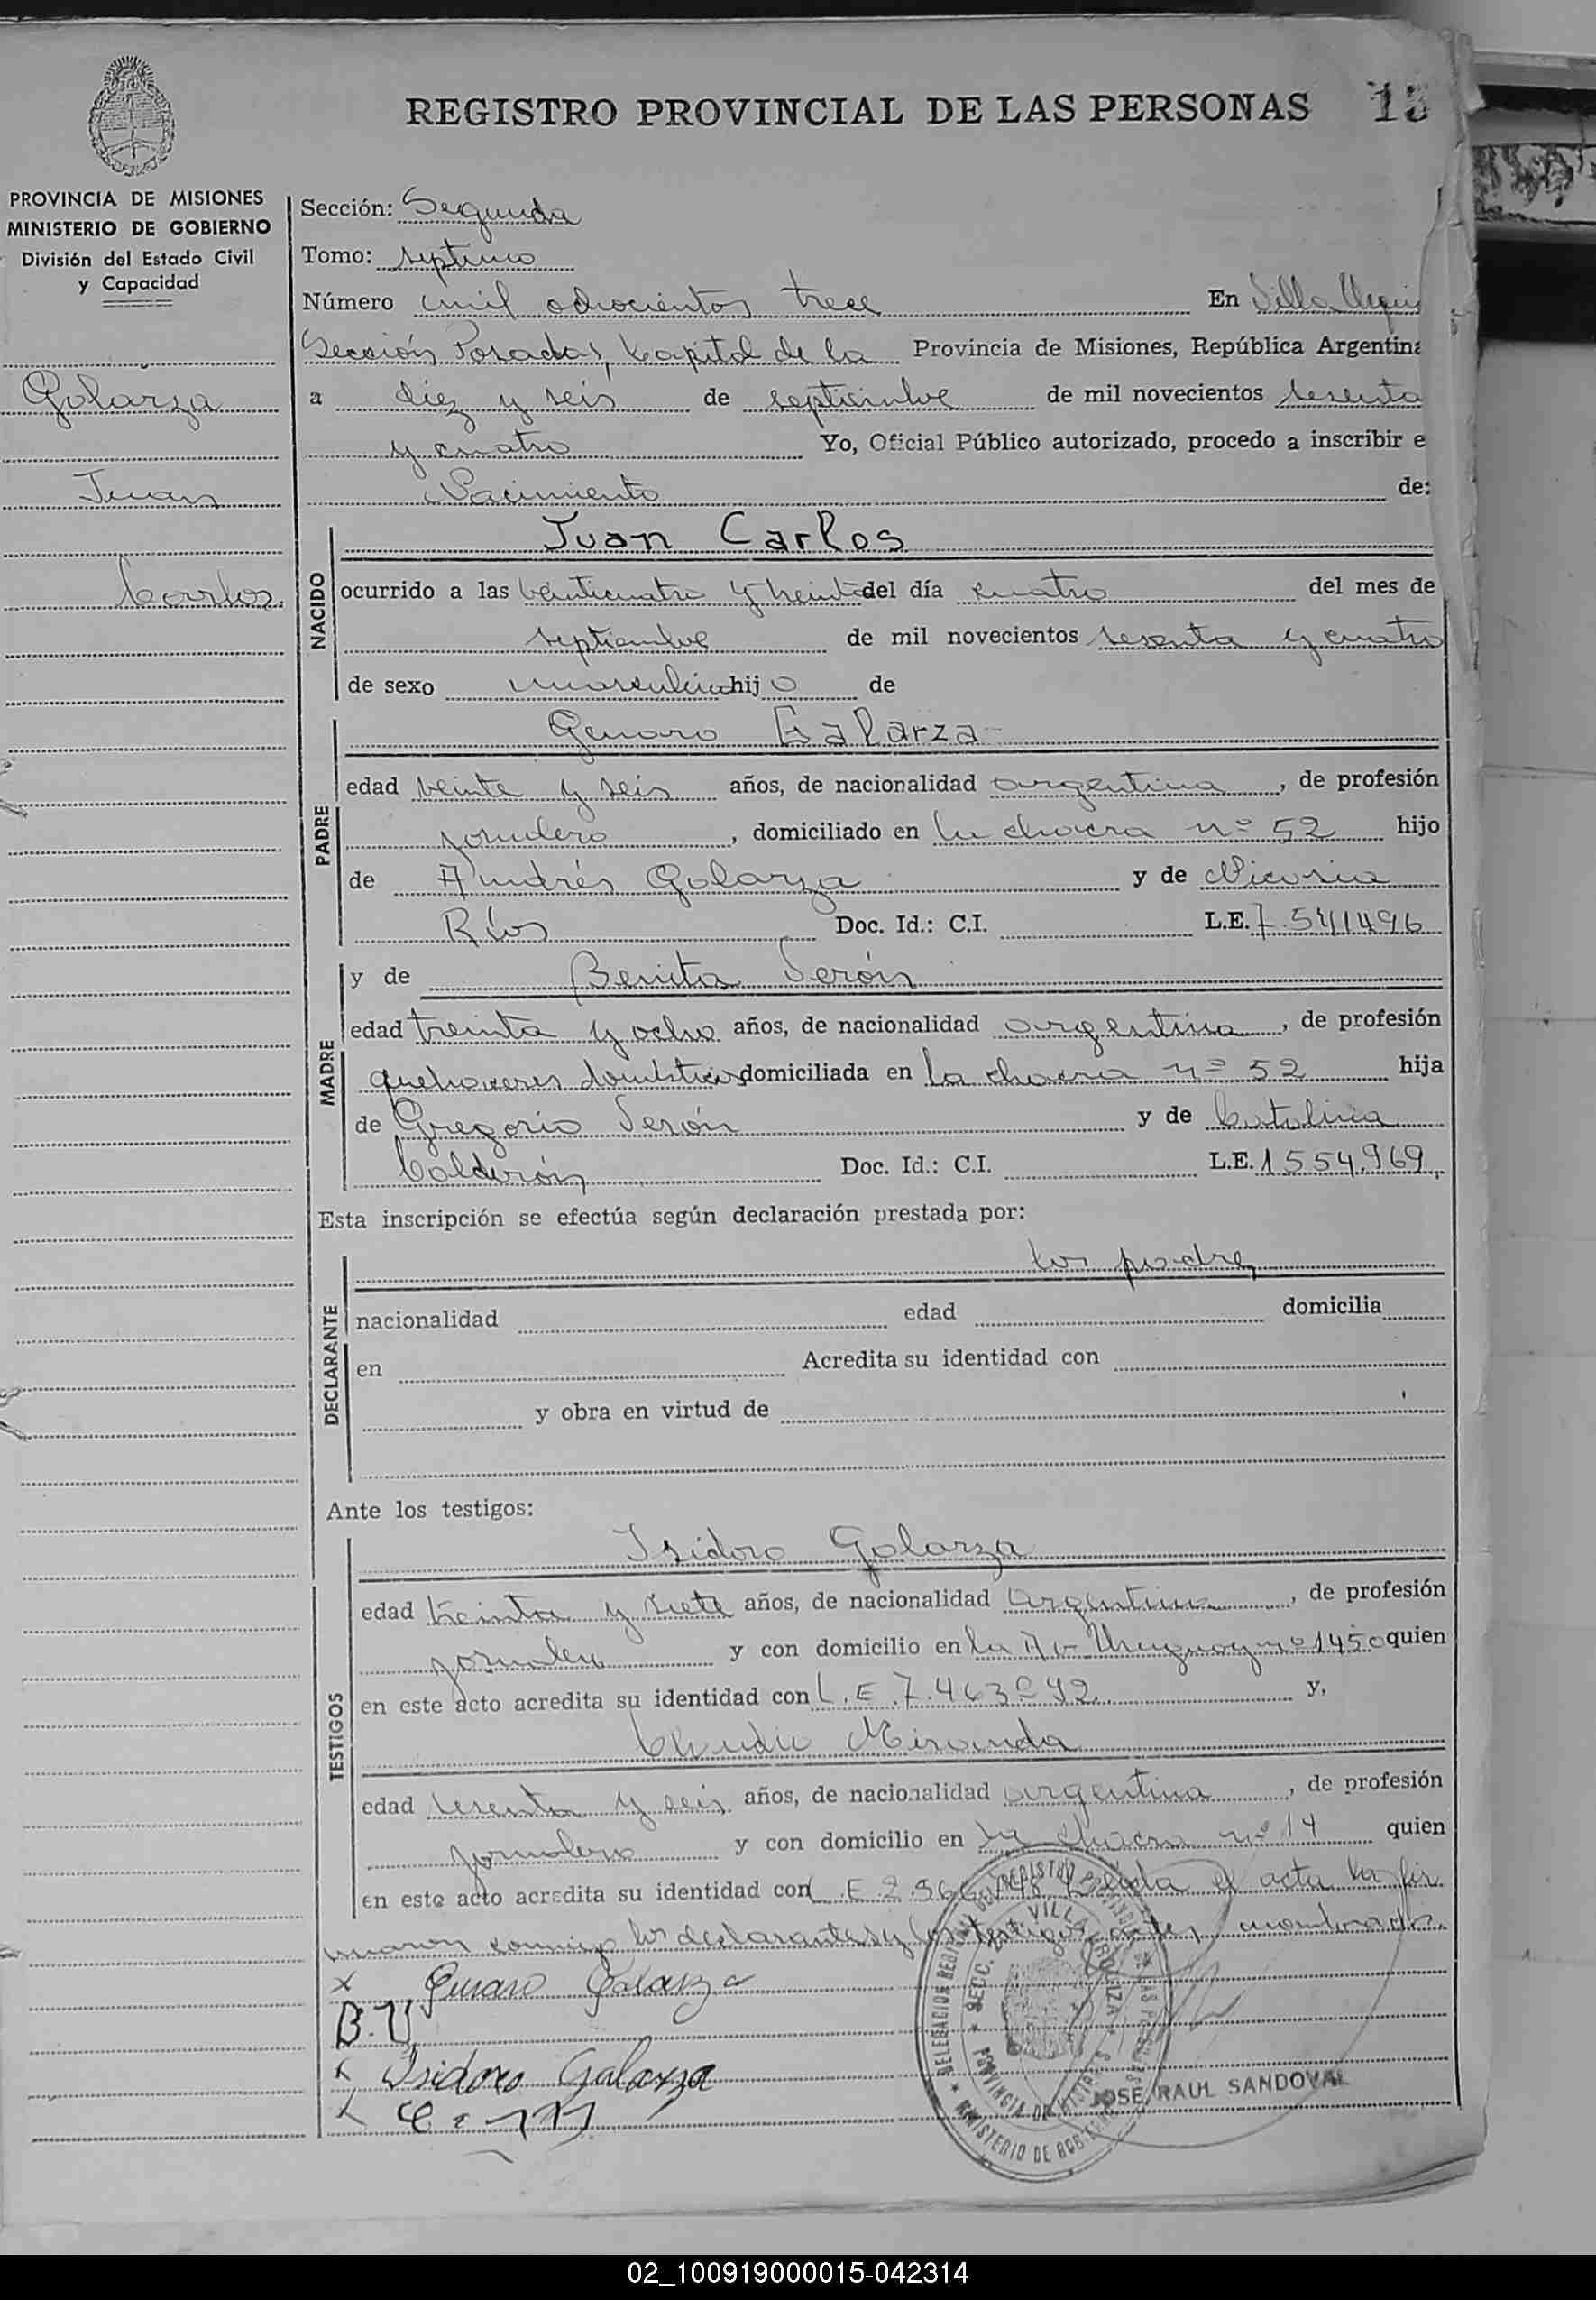 REGISTRO PROVINCIAL DE LAS PERSONAS
PROVINCIA DE MISIONES
MINISTERIO DE GOBIERNO
División del Estado Civil
y Capacidad
Galarza
Juan
Carlos
Sección: Segunda
Tomo: septimo
Número mil ochocientos trece En Villa Urquiz
Sección Posadas, Capital de la Provincia de Misiones, República Argentina
a diez y seis de septiembre de mil novecientos sesenta
y cuatro Yo, Oficial Público autorizado, procedo a inscribir e
Nacimiento de:
NACIDO
Juan Carlos
ocurrido a las veinticuatro y treinta del día cuatro del mes de
septiembre de mil novecientos sesenta y cuatro
de sexo masculino hijo de
PADRE
Genaro Galarza
edad veinte y seis años, de nacionalidad argentina, de profesión
jornalero, domiciliado en la chacra nº 52 hijo
de Andrés Galarza y de Nicasia
Ríos Doc. Id.: C.I. L.E. 7.541496
MADRE
y de Benita Verón
edad treinta y ocho años, de nacionalidad argentina, de profesión
quehaceres domésticos domiciliada en la chacra nº 52 hija
de Gregorio Verón y de Catalina
Calderón Doc. Id.: C.I. L.E. 1554.969
Esta inscripción se efectúa según declaración prestada por:
DECLARANTE
los padres
nacionalidad edad domicilia
en Acredita su identidad con
y obra en virtud de
Ante los testigos:
TESTIGOS
Isidoro Galarza
edad treinta y siete años, de nacionalidad argentina, de profesión
jornalero y con domicilio en la Av Uruguay nº 1450 quien
en este acto acredita su identidad con L.E. 7.463042 y,
Claudio Miranda
edad sesenta y seis años, de nacionalidad argentina, de profesión
jornalero y con domicilio en la chacra nº 14 quien
en este acto acredita su identidad con L.E. Leida el acta la fir
maron conmigo los declarantes y los testigos antes nombrados.
x Genaro Galarza
B.V
x Isidoro Galarza
x
JOSE RAUL SANDOVAL
02_100919000015-042314